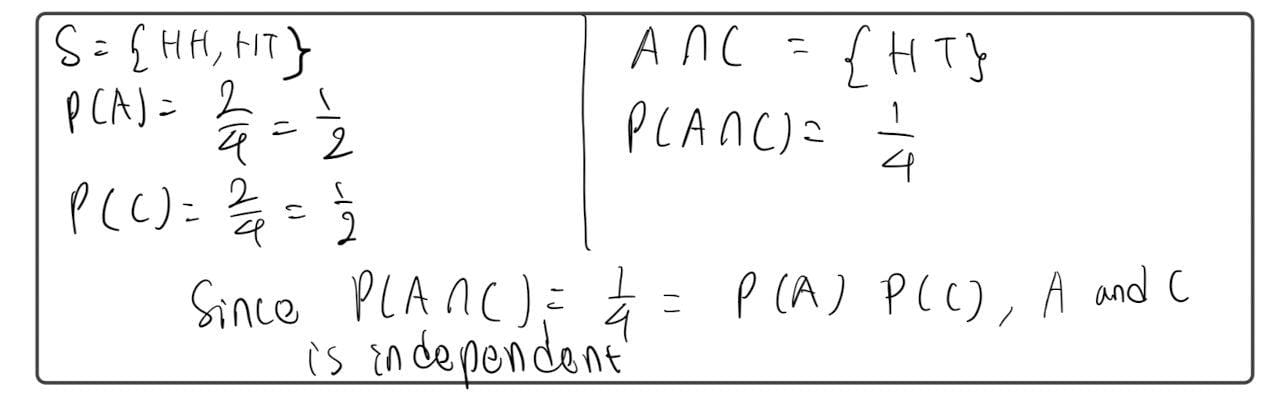 S = {HH, HT}
P(A) = 2/4 = 1/2
P(C) = 2/4 = 1/2
A ∩ C = {HT}
P(A∩C) = 1/4
Since P(A∩C) = 1/4 = P(A) P(C), A and C
is independent